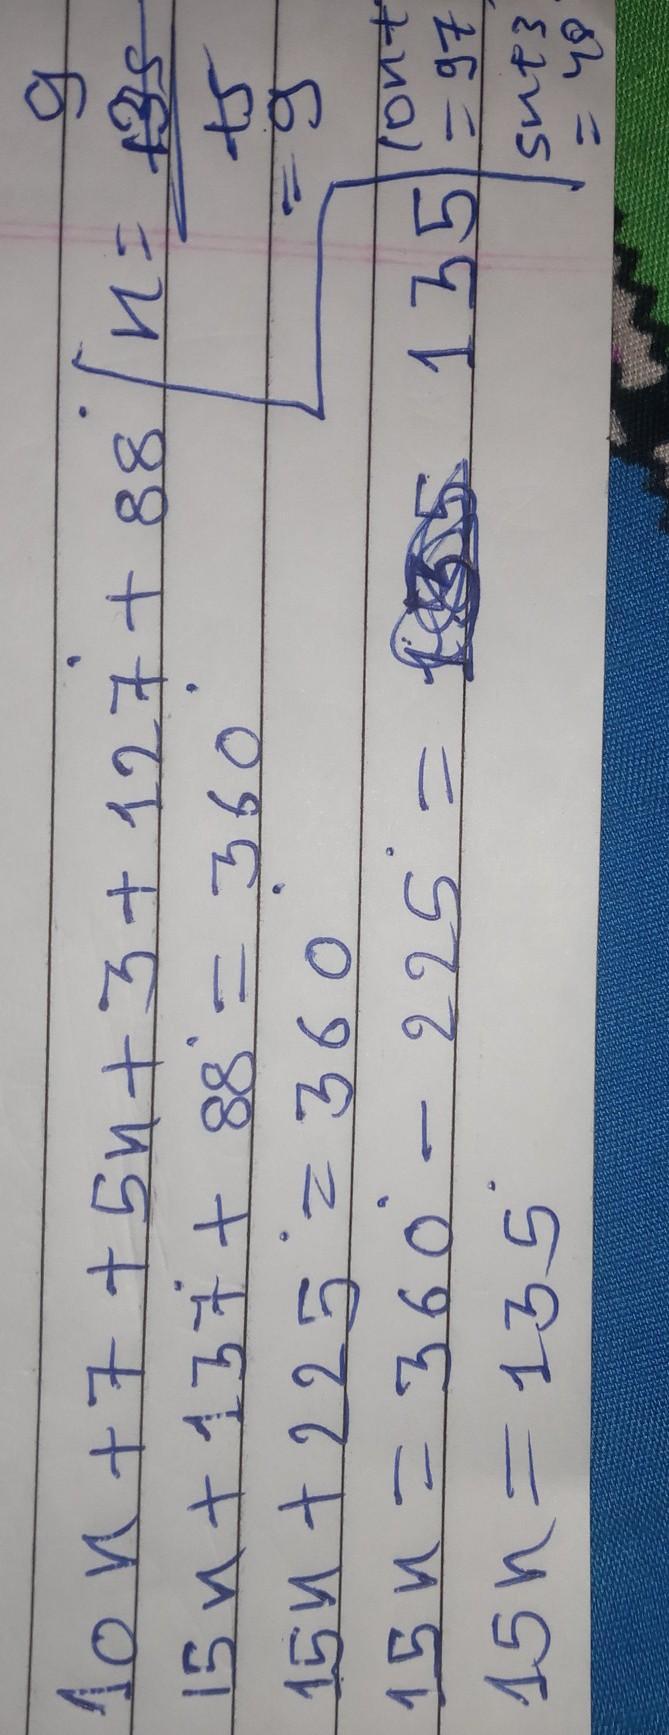 10x + 7 + 5x + 3 + 127° + 88°
15x + 137° + 88° = 360°
15x + 225° = 360°
15x = 360° - 225° = 135
15x = 135°
x = 135
15
= 9
9
10x+7
= 97
5x+3
= 48